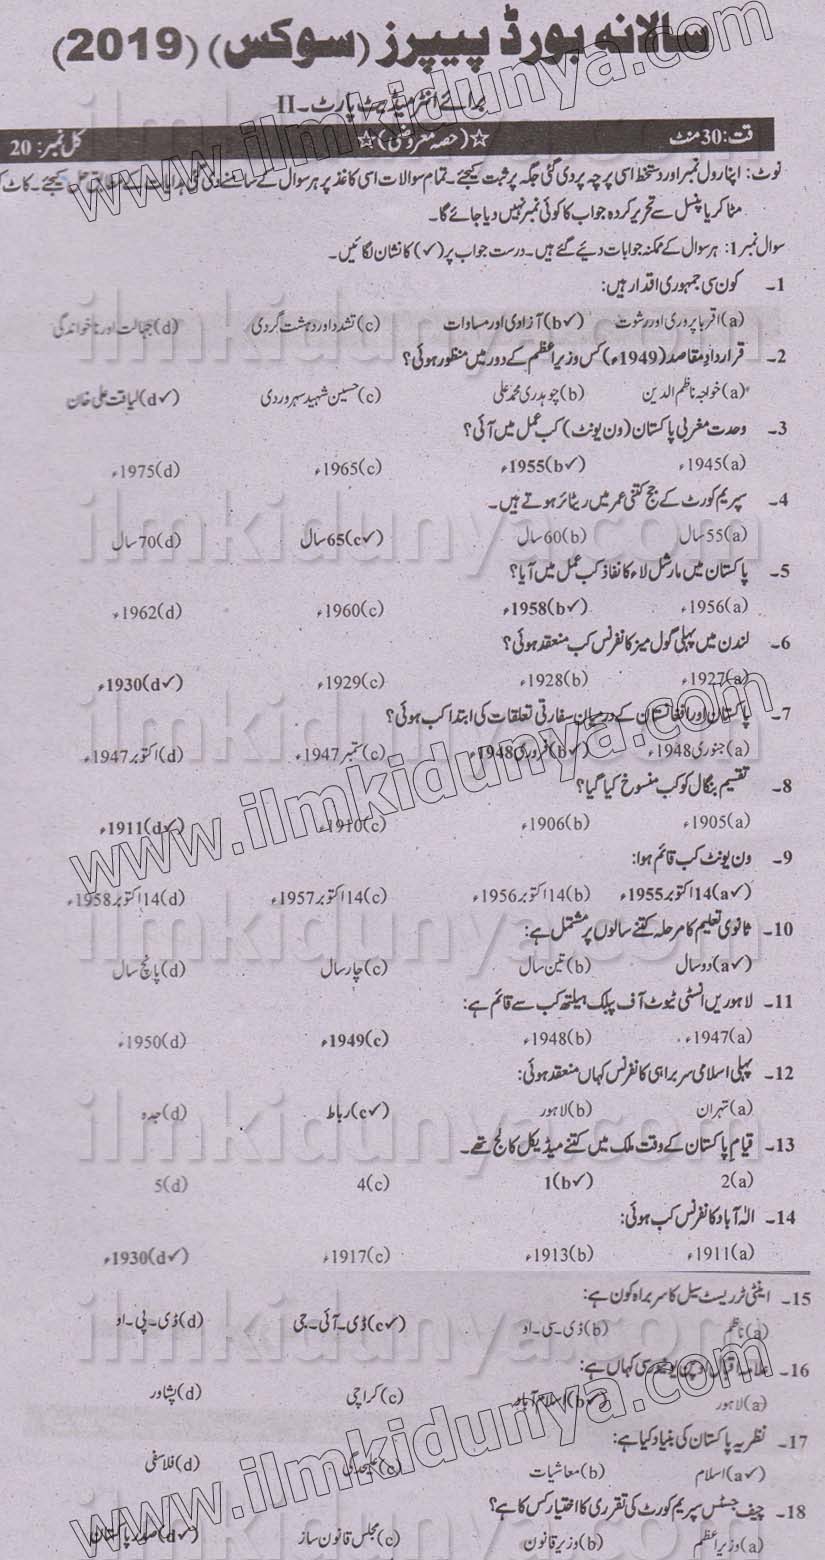 سالانہ بورڈ پیپرز (سوکس) (2019)
برائے انٹرمیڈیٹ پارٹ۔ II
قت: 30 منٹ ☆(حصہ معروضی)☆ کل نمبر: 20
نوٹ: اپنا رول نمبر اور دستخط اسی پرچہ پر دی گئی جگہ پر ثبت کیجئے۔ تمام سوالات اسی کاغذ پر ہر سوال کے سامنے دی گئی ہدایات کے مطابق حل کیجئے۔ کاٹ ک
مٹا کر یا پنسل سے تحریر کردہ جواب کا کوئی نمبر نہیں دیا جائے گا۔
سوال نمبر 1: ہر سوال کے ممکنہ جوابات دیئے گئے ہیں۔ درست جواب پر (✓) کا نشان لگائیں۔
1۔ کون سی جمہوری اقدار ہیں:
(a) اقربا پروری اور رشوت (b✓) آزادی اور مساوات (c) تشدد اور دہشت گردی (d) جہالت اور ناخواندگی
2۔ قرارداد مقاصد (1949ء) کس وزیراعظم کے دور میں منظور ہوئی؟
(a) خواجہ ناظم الدین (b) چوہدری محمد علی (c) حسین شہید سہروردی (d✓) لیاقت علی خان
3۔ وحدت مغربی پاکستان (ون یونٹ) کب عمل میں آئی؟
(a) 1945ء (b✓) 1955ء (c) 1965ء (d) 1975ء
4۔ سپریم کورٹ کے جج کتنی عمر میں ریٹائر ہوتے ہیں۔
(a) 55 سال (b) 60 سال (c✓) 65 سال (d) 70 سال
5۔ پاکستان میں مارشل لاء کا نفاذ کب عمل میں آیا؟
(a) 1956ء (b✓) 1958ء (c) 1960ء (d) 1962ء
6۔ لندن میں پہلی گول میز کانفرنس کب منعقد ہوئی؟
(a) 1927ء (b) 1928ء (c) 1929ء (d✓) 1930ء
7۔ پاکستان اور افغانستان کے درمیان سفارتی تعلقات کی ابتدا کب ہوئی؟
(a) جنوری 1948ء (b✓) فروری 1948ء (c) ستمبر 1947ء (d) اکتوبر 1947ء
8۔ تقسیم بنگال کو کب منسوخ کیا گیا؟
(a) 1905ء (b) 1906ء (c) 1910ء (d✓) 1911ء
9۔ ون یونٹ کب قائم ہوا:
(a✓) 14 اکتوبر 1955ء (b) 14 اکتوبر 1956ء (c) 14 اکتوبر 1957ء (d) 14 اکتوبر 1958ء
10۔ ثانوی تعلیم کا مرحلہ کتنے سالوں پر مشتمل ہے:
(a✓) دو سال (b) تین سال (c) چار سال (d) پانچ سال
11۔ لاہور میں انسٹی ٹیوٹ آف پبلک ہیلتھ کب سے قائم ہے:
(a) 1947ء (b) 1948ء (c✓) 1949ء (d) 1950ء
12۔ پہلی اسلامی سربراہی کانفرنس کہاں منعقد ہوئی:
(a) تہران (b) لاہور (c✓) رباط (d) جدہ
13۔ قیام پاکستان کے وقت ملک میں کتنے میڈیکل کالج تھے۔
(a) 2 (b✓) 1 (c) 4 (d) 5
14۔ الہ آباد کانفرنس کب ہوئی:
(a) 1911ء (b) 1913ء (c) 1917ء (d✓) 1930ء
15۔ اینٹی ٹررسٹ سیل کا سربراہ کون ہے:
(a) ناظم (b) ڈی۔سی۔او (c✓) ڈی۔آئی۔جی (d) ڈی۔پی۔او
16۔ علامہ اقبال اوپن یونیورسٹی کہاں ہے:
(a) لاہور (b✓) اسلام آباد (c) کراچی (d) پشاور
17۔ نظریہ پاکستان کی بنیاد کیا ہے:
(a✓) اسلام (b) معاشیات (c) علیحدگی (d) فلاسفی
18۔ چیف جسٹس سپریم کورٹ کی تقرری کا اختیار کس کا ہے؟
(a) وزیراعظم (b) وزیر قانون (c) مجلس قانون ساز (d✓) صدر پاکستان
www.ilmkidunya.com
www.ilmkidunya.com
www.ilmkidunya.com
ilmkidunya.com
ilmkidunya.com
ilmkidunya.com
ilmkidunya.com
ilmkidunya.com
ilmkidunya.com
ilmkidunya.com
ilmkidunya.com